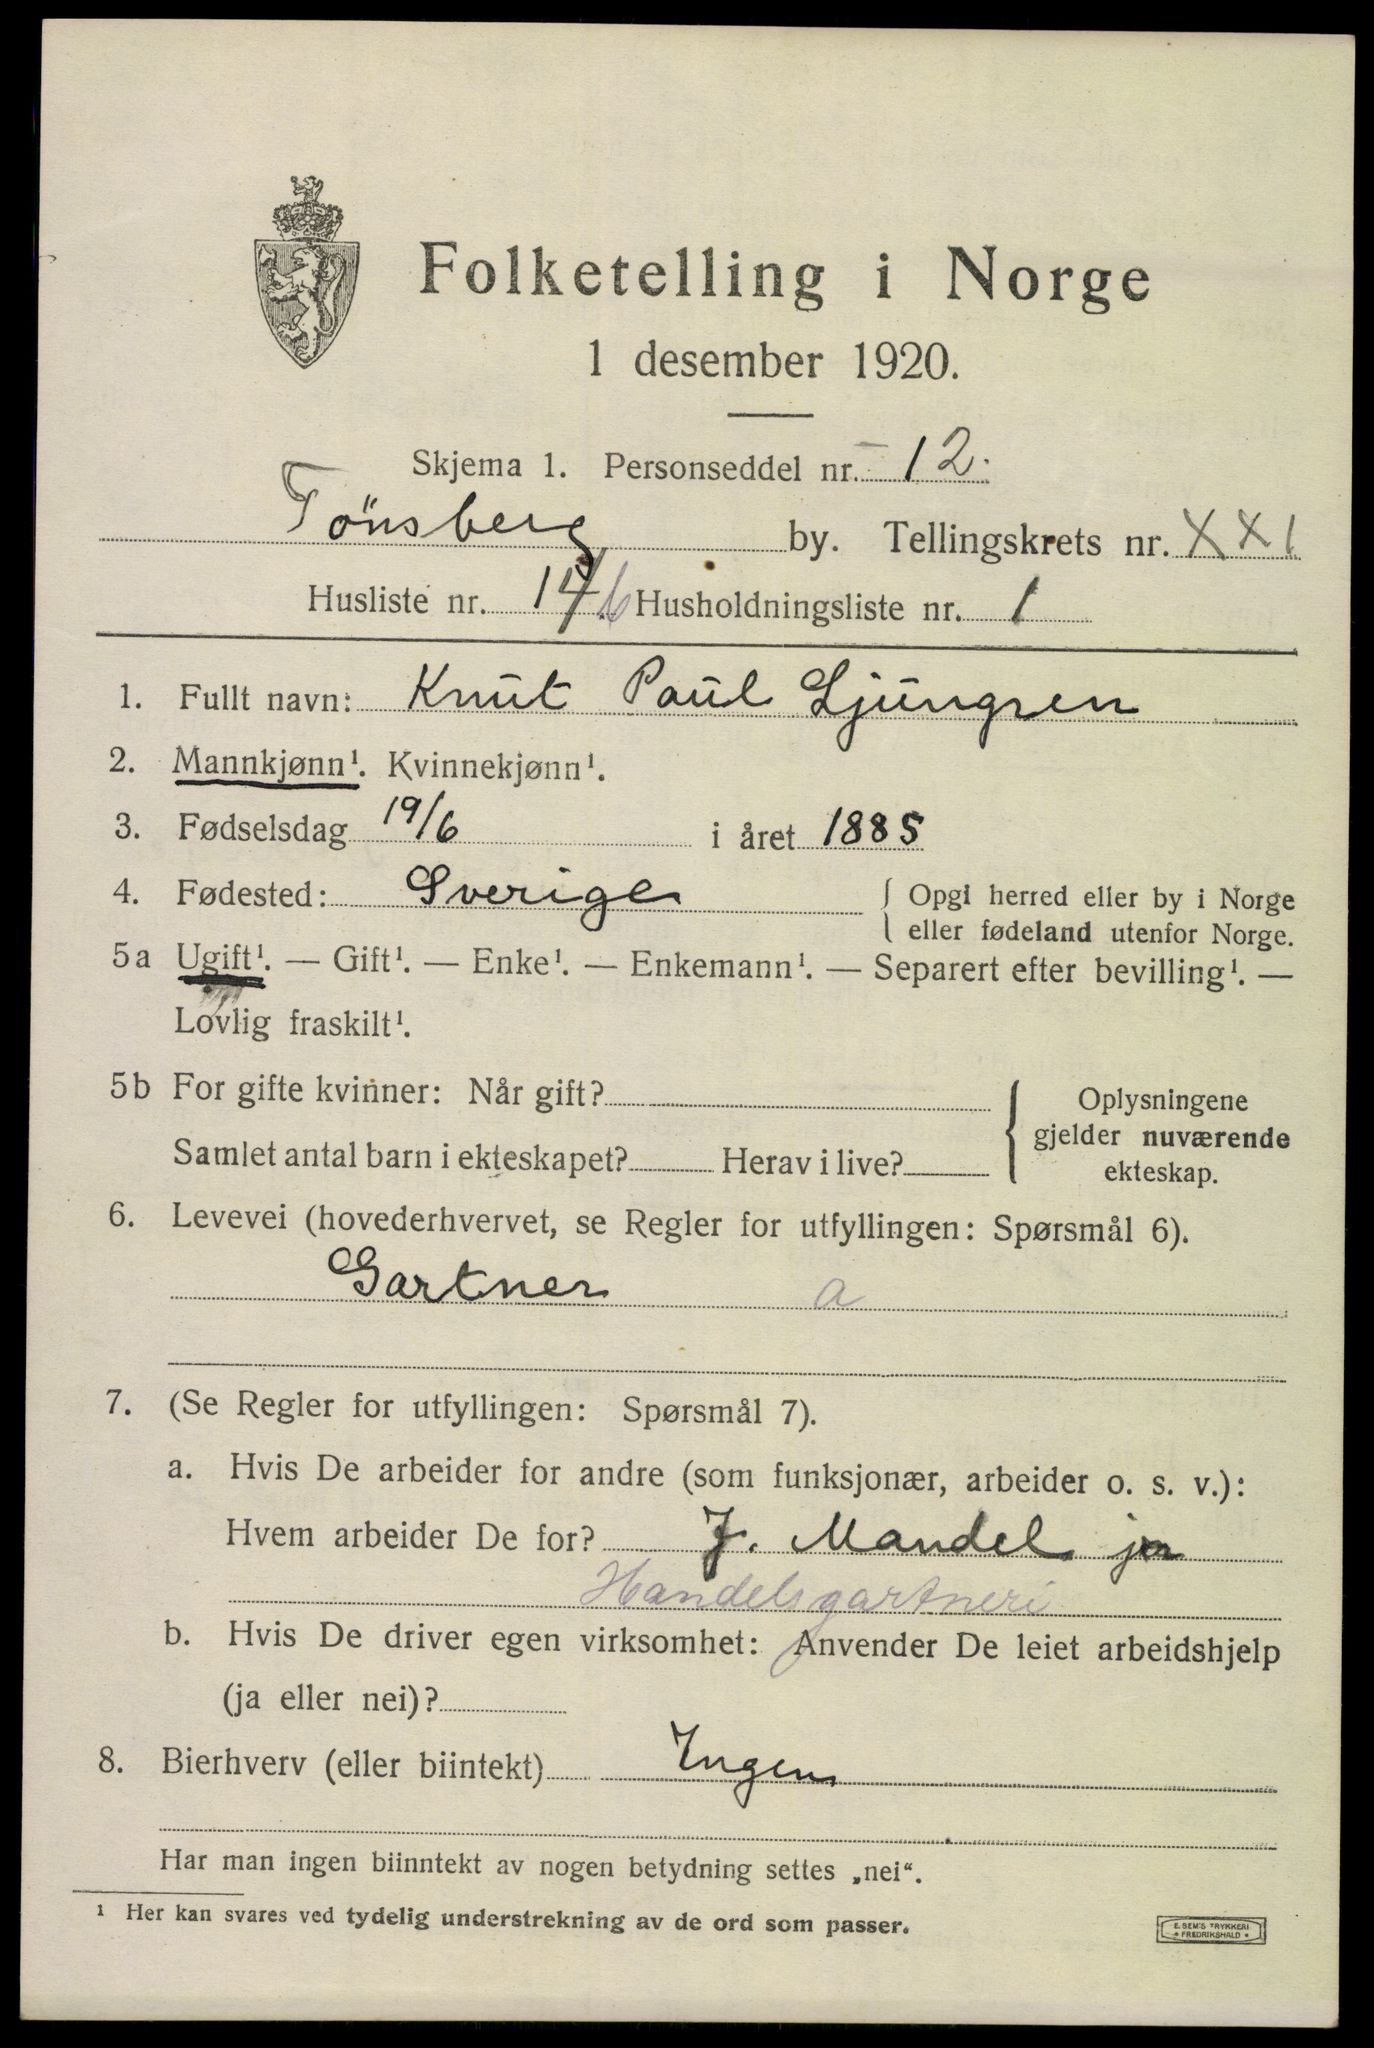 Folketelling i Norge
1 desember 1920.
Skjema 1. Personseddel nr. 12.
Tönsberg by. Tellingskrets nr. XXI
Husliste nr. 14 b Husholdningsliste nr. 1
1. Fullt navn: Knut Paul Ljungren
2. Mannkjønn¹. Kvinnekjønn¹.
3. Fødselsdag 19/6 i året 1885
4. Fødested: Sverige { Opgi herred eller by i Norge
eller fødeland utenfor Norge.
5a Ugift¹. — Gift¹. — Enke¹. — Enkemann¹. — Separert efter bevilling¹. —
Lovlig fraskilt¹.
5b For gifte kvinner: Når gift?
Samlet antal barn i ekteskapet? Herav i live?
Oplysningene
gjelder nuværende
ekteskap.
6. Levevei (hovederhvervet, se Regler for utfyllingen: Spørsmål 6).
Gartner a
7. (Se Regler for utfyllingen: Spørsmål 7).
a. Hvis De arbeider for andre (som funksjonær, arbeider o. s. v.):
Hvem arbeider De for? J. Mandel jr
Handelsgartneri
b. Hvis De driver egen virksomhet: Anvender De leiet arbeidshjelp
(ja eller nei)?
8. Bierhverv (eller biintekt) Ingen
Har man ingen biinntekt av nogen betydning settes „nei“.
¹ Her kan svares ved tydelig understrekning av de ord som passer.
E. SEM'S TRYKKERI
• FREDRIKSHALD •